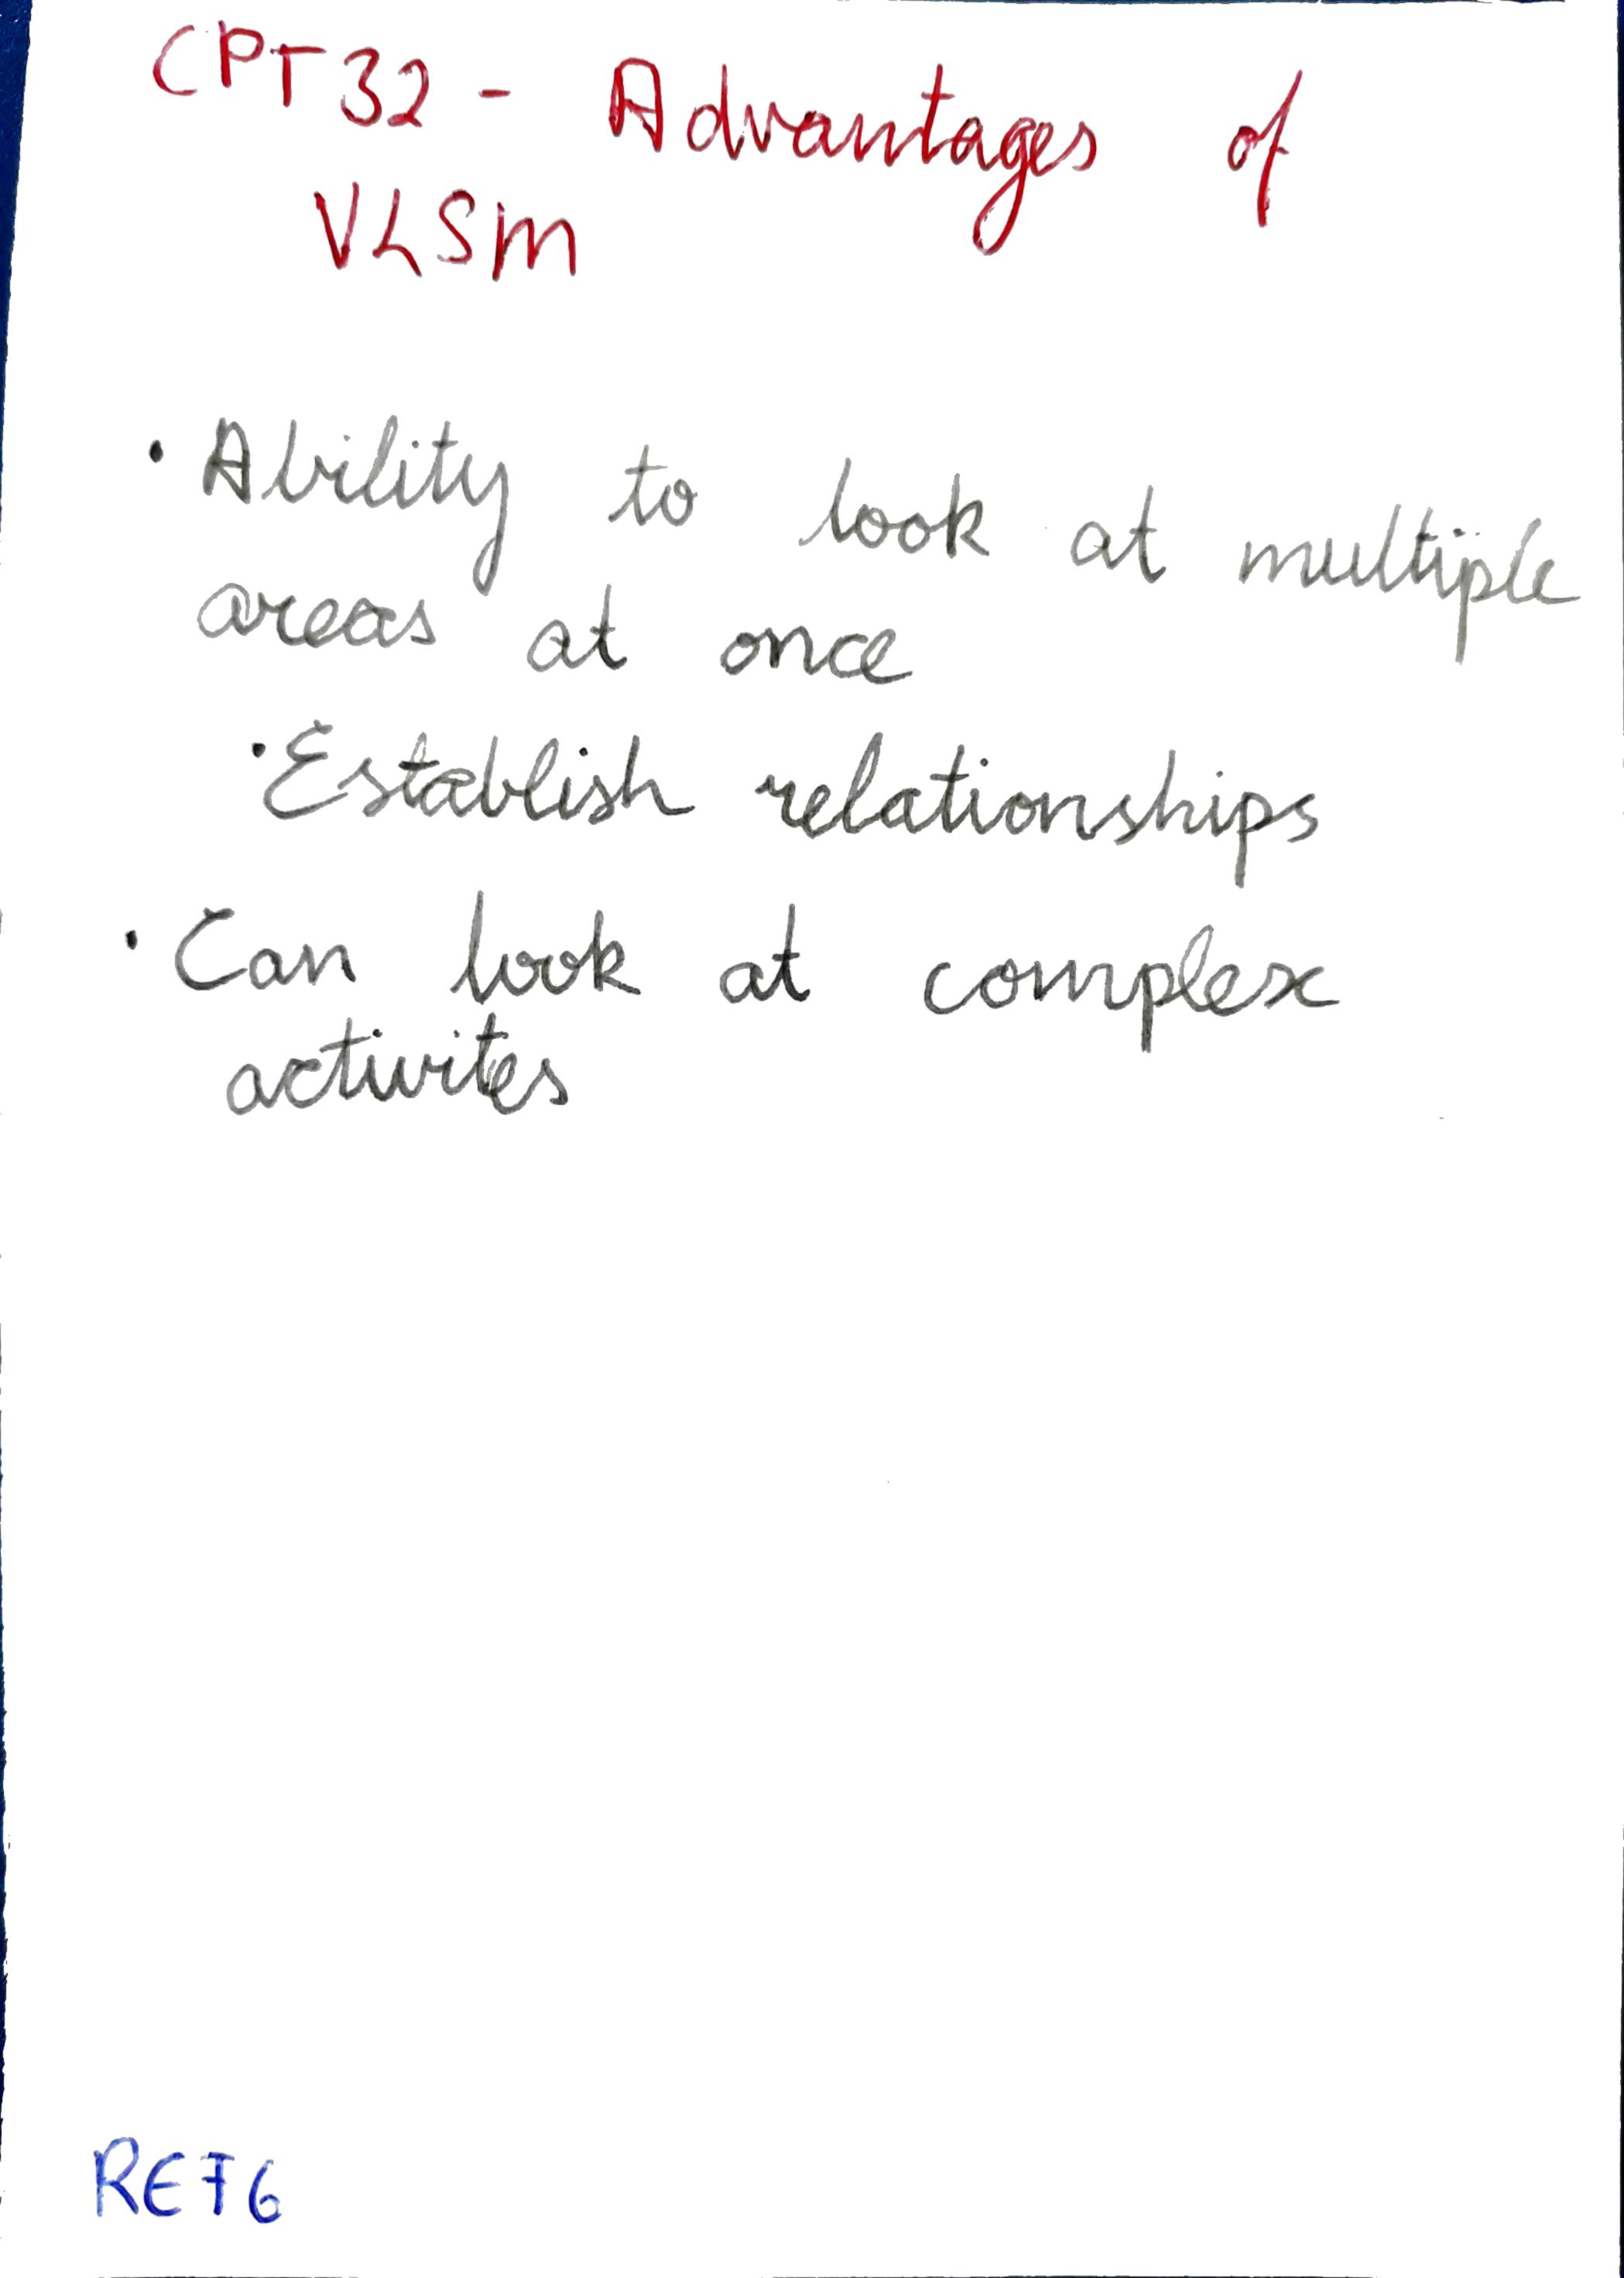 CPT 32 - Advantages of
VLSM
• Ability to look at multiple
areas at once
• Establish relationships
• Can look at complex
activites
REF6